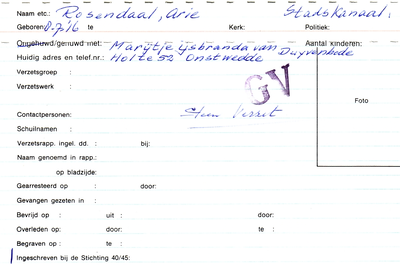 Naam etc.: Rosendaal, Arie Stadskanaal.
Geboren: 8.7.16 te Kerk: Politiek:
Ongehuwd/gehuwd met: Marijtje ijsbranda van Duyvenbode Aantal kinderen:
Huidig adres en telef.nr.: Holte 52 Onstwedde
Verzetsgroep :
Verzetswerk :
GV
Foto
Contactpersonen: Verzet
Schuilnaam :
Verzetsrapp. ingel. dd. : bij:
Naam genoemd in rapp.:
op bladzijde:
Gearresteerd op : door:
Gevangen gezeten in :
Bevrijd op : uit : door:
Overleden op: door: te :
Begraven op : te :
Ingeschreven bij de Stichting 40/45: